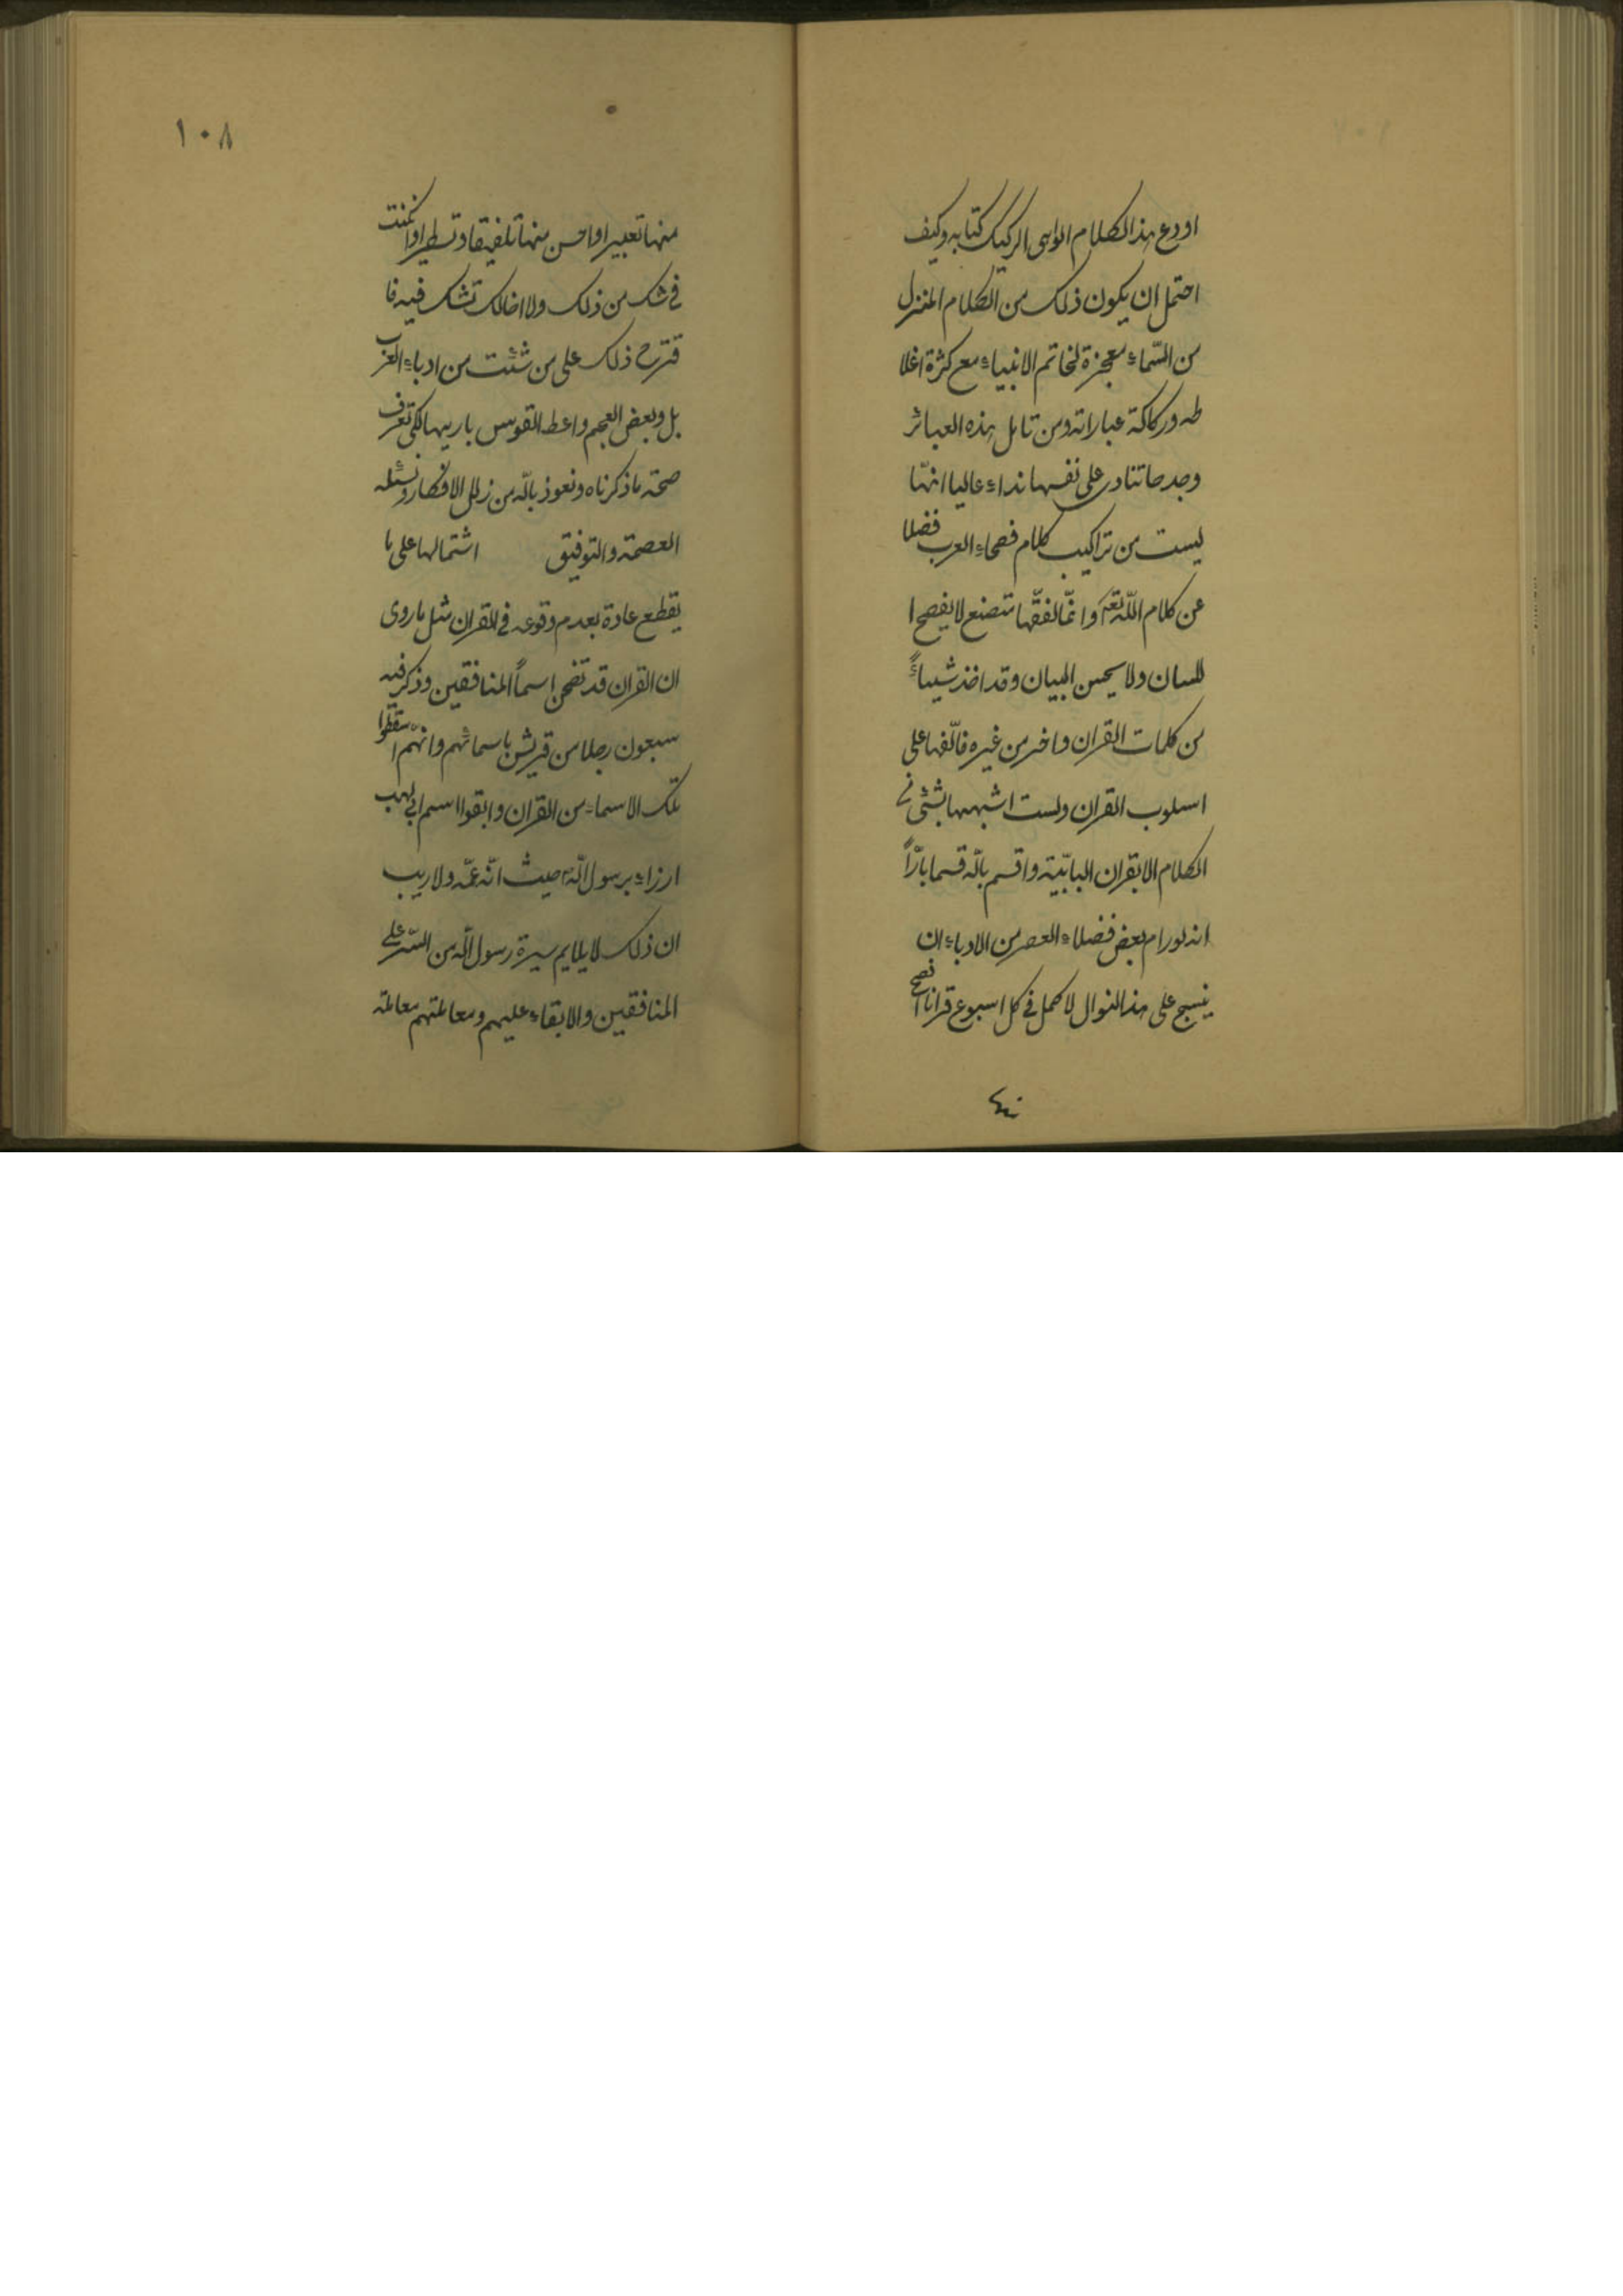 اودع هذا الكلام الواهى الركيك كتابه وكيف
احتمل ان يكون ذلك من الكلام المنزل
من السّماء معجزة لخاتم الانبياء مع كثرة اغلا
طه وركاكة عباراته ومن تامل هذه العبائر
وجدها تنادى على نفسها نداء عاليا انهّا
ليست من تراكيب كلام فصحاء العرب فضلا
عن كلام اللّه تعه وانمّا لفقّها متصنع لا يفصح ا
للسان ولا يحسن البيان وقد اخذ شيئاً
من كلمات القران واخر من غيره فالّفها على
اسلوب القران ولست اشبهها بشئ فى
الكلام الا بقران البابيّة واقسم باللّه قسما بارّاً
انه لو رام بعض فضلاء العصر من الادباء ان
ينسج على هذا المنوال لا كمل فى كل اسبوع قرانا افصح
منها
١٠٨
منها تعبيرا او احسن منها تلفيقا وتسطيرا وانكنت
فى شك من ذلك ولا اخالك تشك فيه فا
قترح ذلك على من شئت من ادباء العرب
بل وبعض العجم واعط القوس باريها لكى تعرف
صحة ما ذكرناه ونعوذ باللّه من زلل الافكار ونسئله
العصمة والتوفيق اشتمالها على ما
يقطع عادة بعدم وقوعه فى القران مثل ما روى
ان القران قد تضمن اسماً المنافقين وذكر فيه
سبعون رجلا من قريش باسمائهم وانهّم اسقطوا
تلك الاسماء من القران وابقوا اسم ابى لهب
ارزاء برسول اللّه حيث انّه عمّه ولا ريب
ان ذلك لا يلايم سيرة رسول اللّه من السّتر على
المنافقين والابقاء عليهم ومعاملتهم معاملة